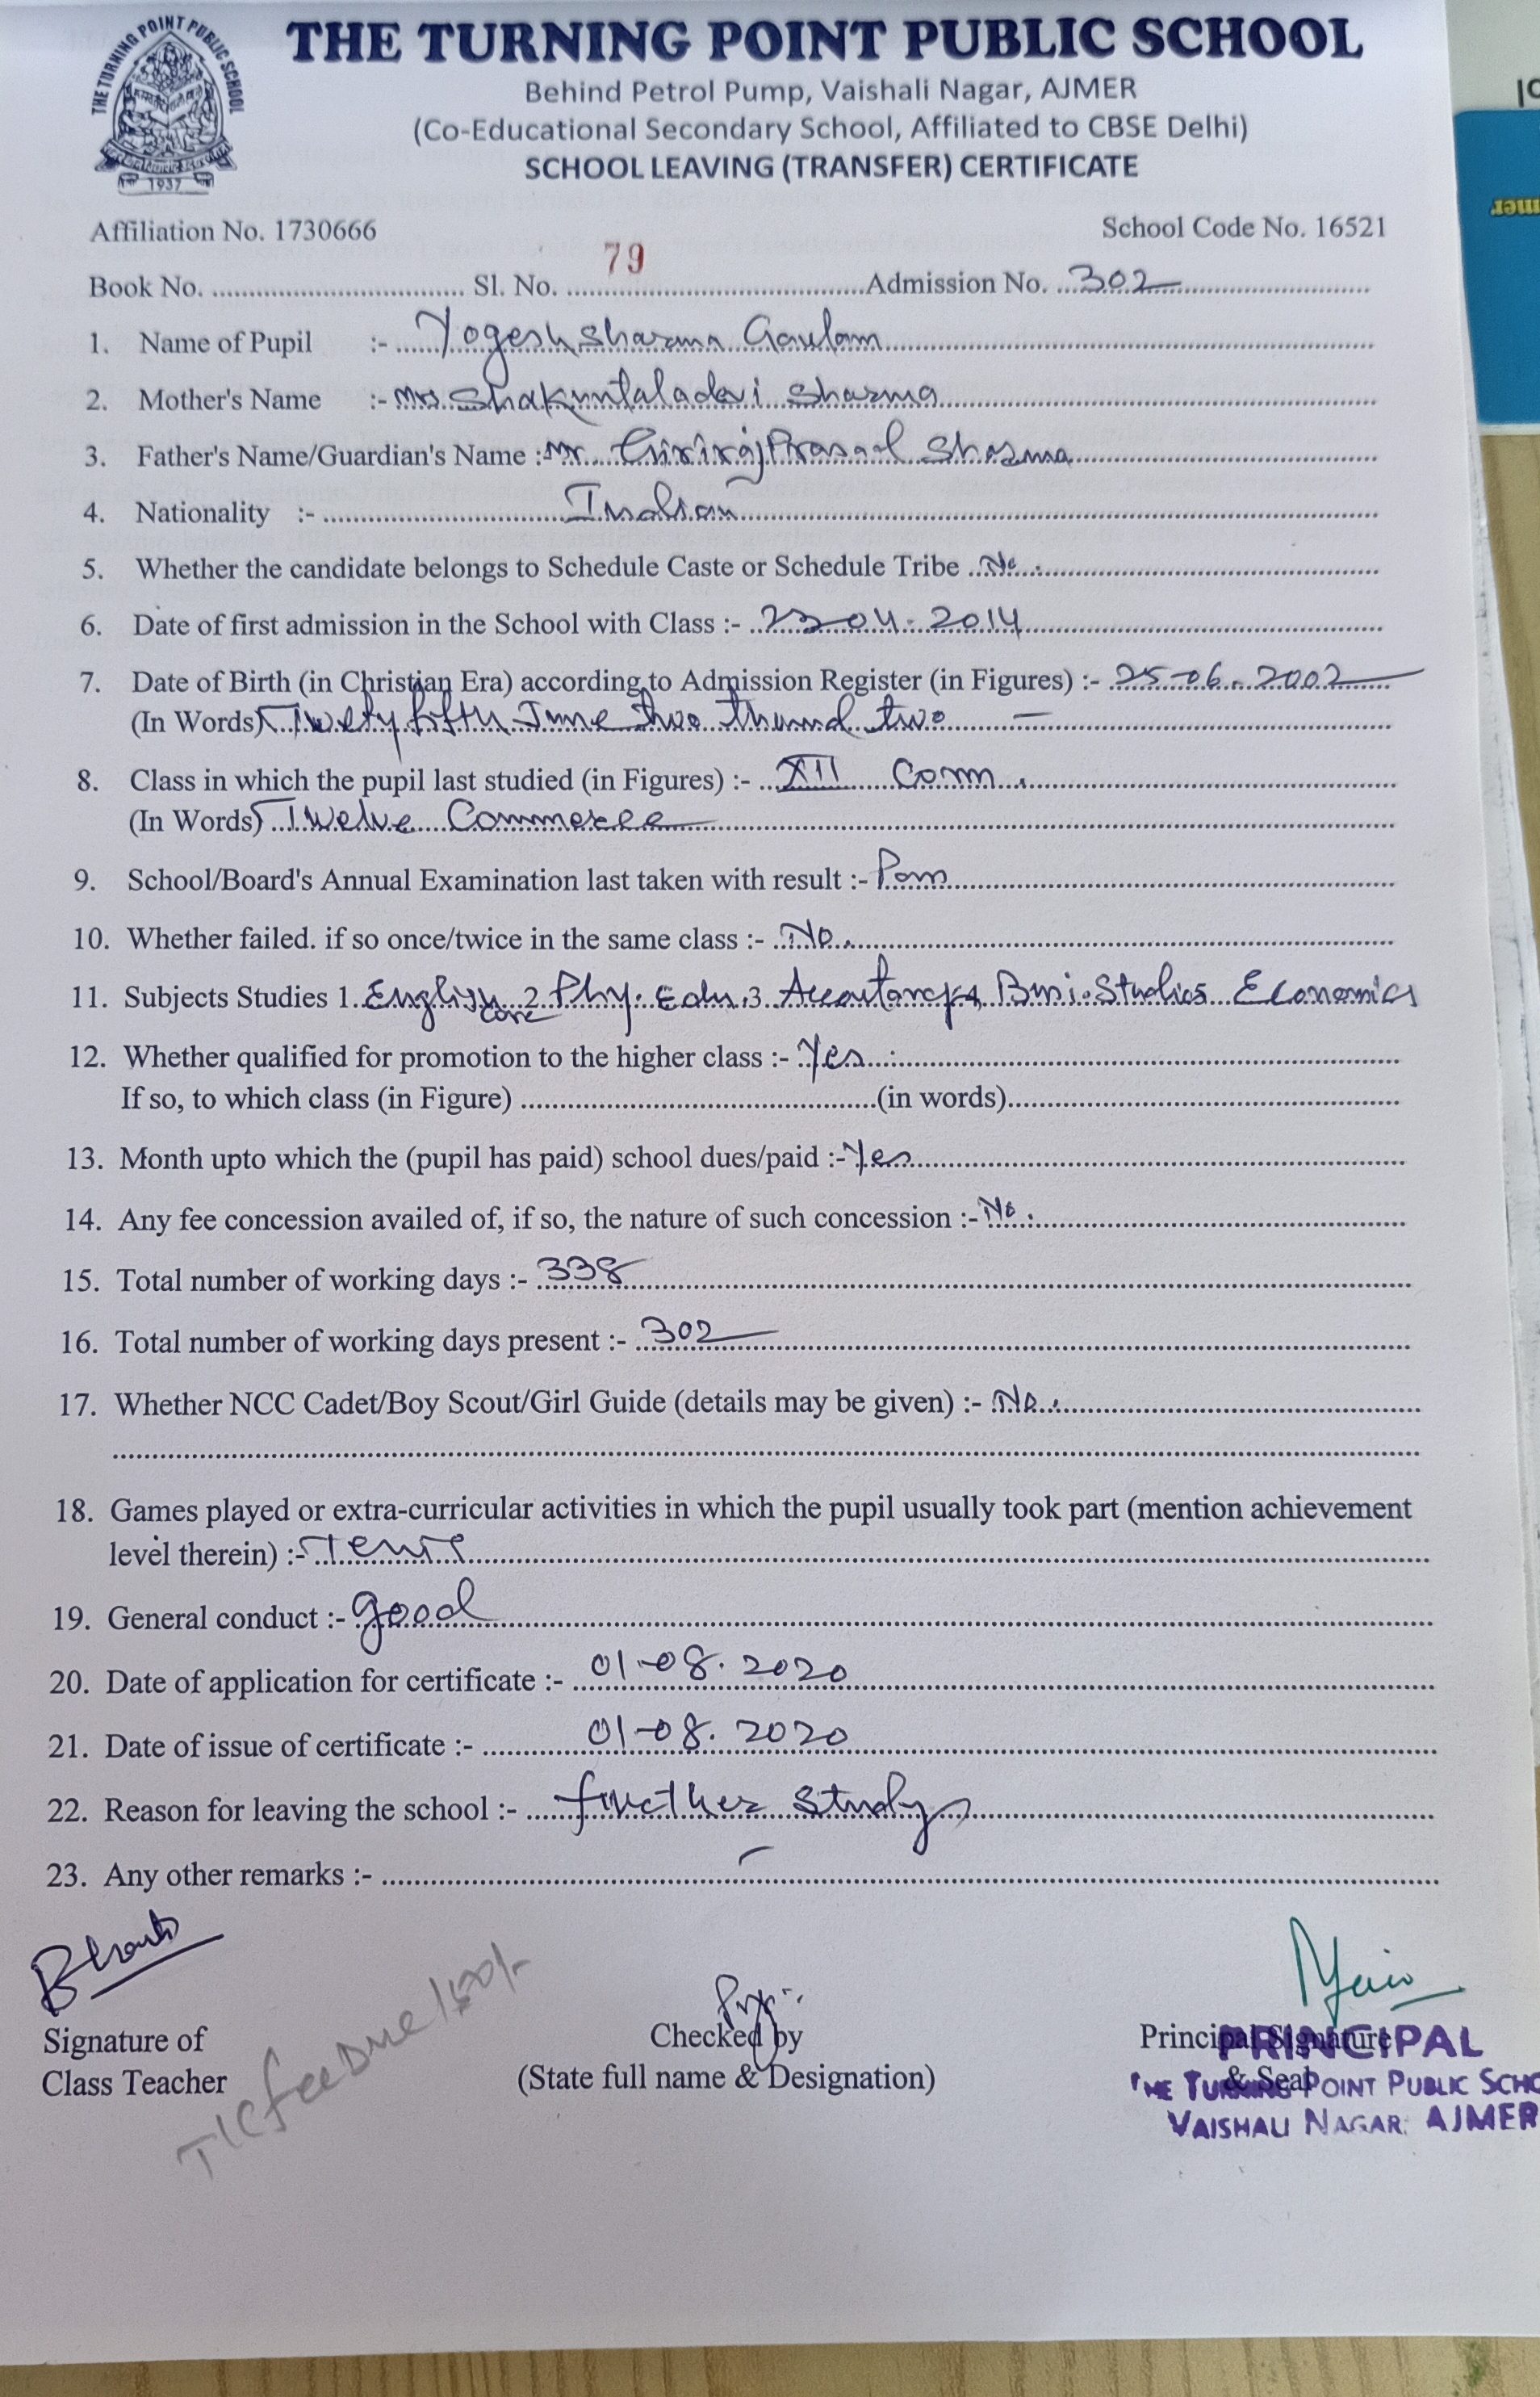 THE TURNING POINT PUBLIC SCHOOL
THE TURNING POINT PUBLIC SCHOOL
1937
Behind Petrol Pump, Vaishali Nagar, AJMER
(Co-Educational Secondary School, Affiliated to CBSE Delhi)
SCHOOL LEAVING (TRANSFER) CERTIFICATE
Affiliation No. 1730666 School Code No. 16521
Book No. Sl. No. 79 Admission No. 302
1. Name of Pupil :- Yogesh Sharma Gautam
2. Mother's Name :- Mrs. Shakuntaladevi Sharma
3. Father's Name/Guardian's Name :- Mr. Giriraj Prasad Sharma
4. Nationality :- Indian
5. Whether the candidate belongs to Schedule Caste or Schedule Tribe No.
6. Date of first admission in the School with Class :- 23-04-2014
7. Date of Birth (in Christian Era) according to Admission Register (in Figures) :- 25-06-2002
(In Words) Twety fifth June two thund two
8. Class in which the pupil last studied (in Figures) :- XII Comm.
(In Words) Twelve Commerce
9. School/Board's Annual Examination last taken with result :- Pass
10. Whether failed. if so once/twice in the same class :- No.
11. Subjects Studies 1. English core 2. Phy. Edu. 3 Accoutancy 4 Busi. Studies Economics
12. Whether qualified for promotion to the higher class :- Yes
If so, to which class (in Figure) (in words)
13. Month upto which the (pupil has paid) school dues/paid :- Yes
14. Any fee concession availed of, if so, the nature of such concession :- No.
15. Total number of working days :- 338
16. Total number of working days present :- 302
17. Whether NCC Cadet/Boy Scout/Girl Guide (details may be given) :- No.
18. Games played or extra-curricular activities in which the pupil usually took part (mention achievement
level therein) :-
19. General conduct :- good
20. Date of application for certificate :- 01-08.2020
21. Date of issue of certificate :- 01-08.2020
22. Reason for leaving the school :- further study
23. Any other remarks :- -
Signature of
Class Teacher
T/C fee Due
Checked by
(State full name & Designation)
Principal Signature
& Seal
PRINCIPAL
THE TURNING POINT PUBLIC SCHO
VAISHALI NAGAR, AJMER